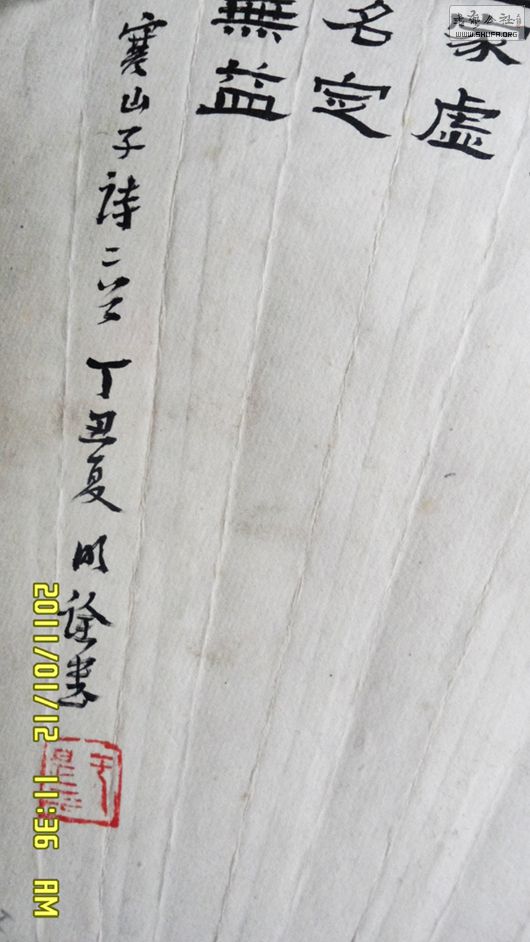 蒙虛
名定
無益
寒山子詩二首 丁丑夏 明詮書
書法公社
WWW.SHUFA.ORG
2011/01/12 11:36 AM